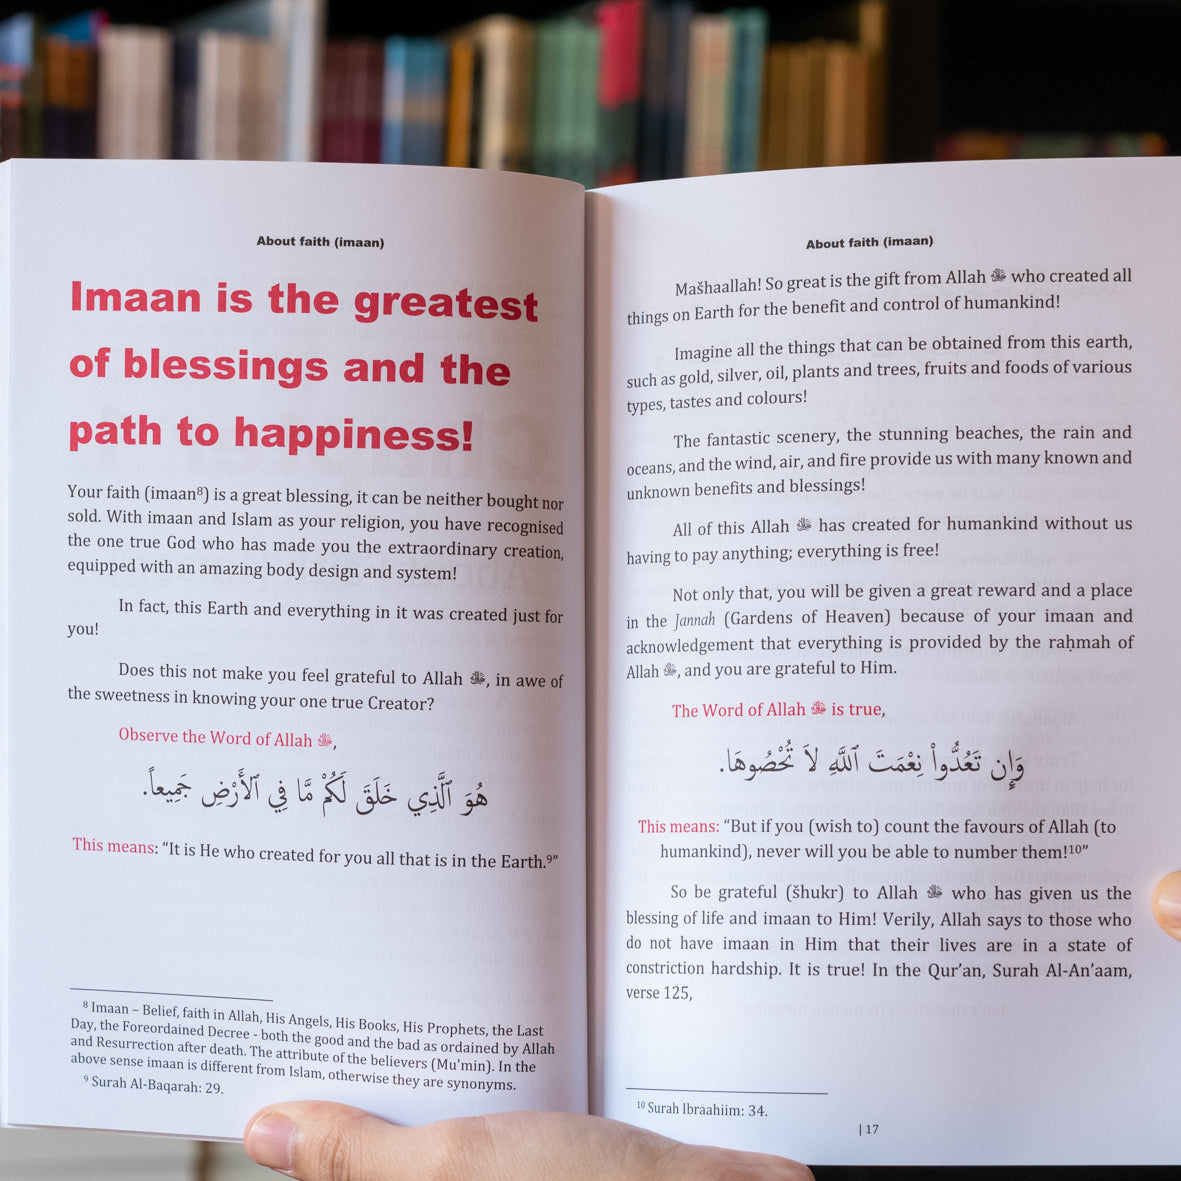 About faith (imaan)
Imaan is the greatest
of blessings and the
path to happiness!
Your faith (imaan⁸) is a great blessing, it can be neither bought nor
sold. With imaan and Islam as your religion, you have recognised
the one true God who has made you the extraordinary creation,
equipped with an amazing body design and system!
In fact, this Earth and everything in it was created just for
you!
Does this not make you feel grateful to Allah ﷻ, in awe of
the sweetness in knowing your one true Creator?
Observe the Word of Allah ﷻ,
هُوَ ٱلَّذِي خَلَقَ لَكُمْ مَّا فِي ٱلأَرْضِ جَمِيعاً.
This means: “It is He who created for you all that is in the Earth.⁹”
⁸ Imaan – Belief, faith in Allah, His Angels, His Books, His Prophets, the Last
Day, the Foreordained Decree - both the good and the bad as ordained by Allah
and Resurrection after death. The attribute of the believers (Mu'min). In the
above sense imaan is different from Islam, otherwise they are synonyms.
⁹ Surah Al-Baqarah: 29.
About faith (imaan)
Mašhaallah! So great is the gift from Allah ﷻ who created all
things on Earth for the benefit and control of humankind!
Imagine all the things that can be obtained from this earth,
such as gold, silver, oil, plants and trees, fruits and foods of various
types, tastes and colours!
The fantastic scenery, the stunning beaches, the rain and
oceans, and the wind, air, and fire provide us with many known and
unknown benefits and blessings!
All of this Allah ﷻ has created for humankind without us
having to pay anything; everything is free!
Not only that, you will be given a great reward and a place
in the Jannah (Gardens of Heaven) because of your imaan and
acknowledgement that everything is provided by the raḥmah of
Allah ﷻ, and you are grateful to Him.
The Word of Allah ﷻ is true,
وَإِن تَعُدُّواْ نِعْمَتَ ٱللَّهِ لاَ تُحْصُوهَا.
This means: “But if you (wish to) count the favours of Allah (to
humankind), never will you be able to number them!¹⁰”
So be grateful (šhukr) to Allah ﷻ who has given us the
blessing of life and imaan to Him! Verily, Allah says to those who
do not have imaan in Him that their lives are in a state of
constriction hardship. It is true! In the Qur’an, Surah Al-An’aam,
verse 125,
¹⁰ Surah Ibraahiim: 34.
| 17